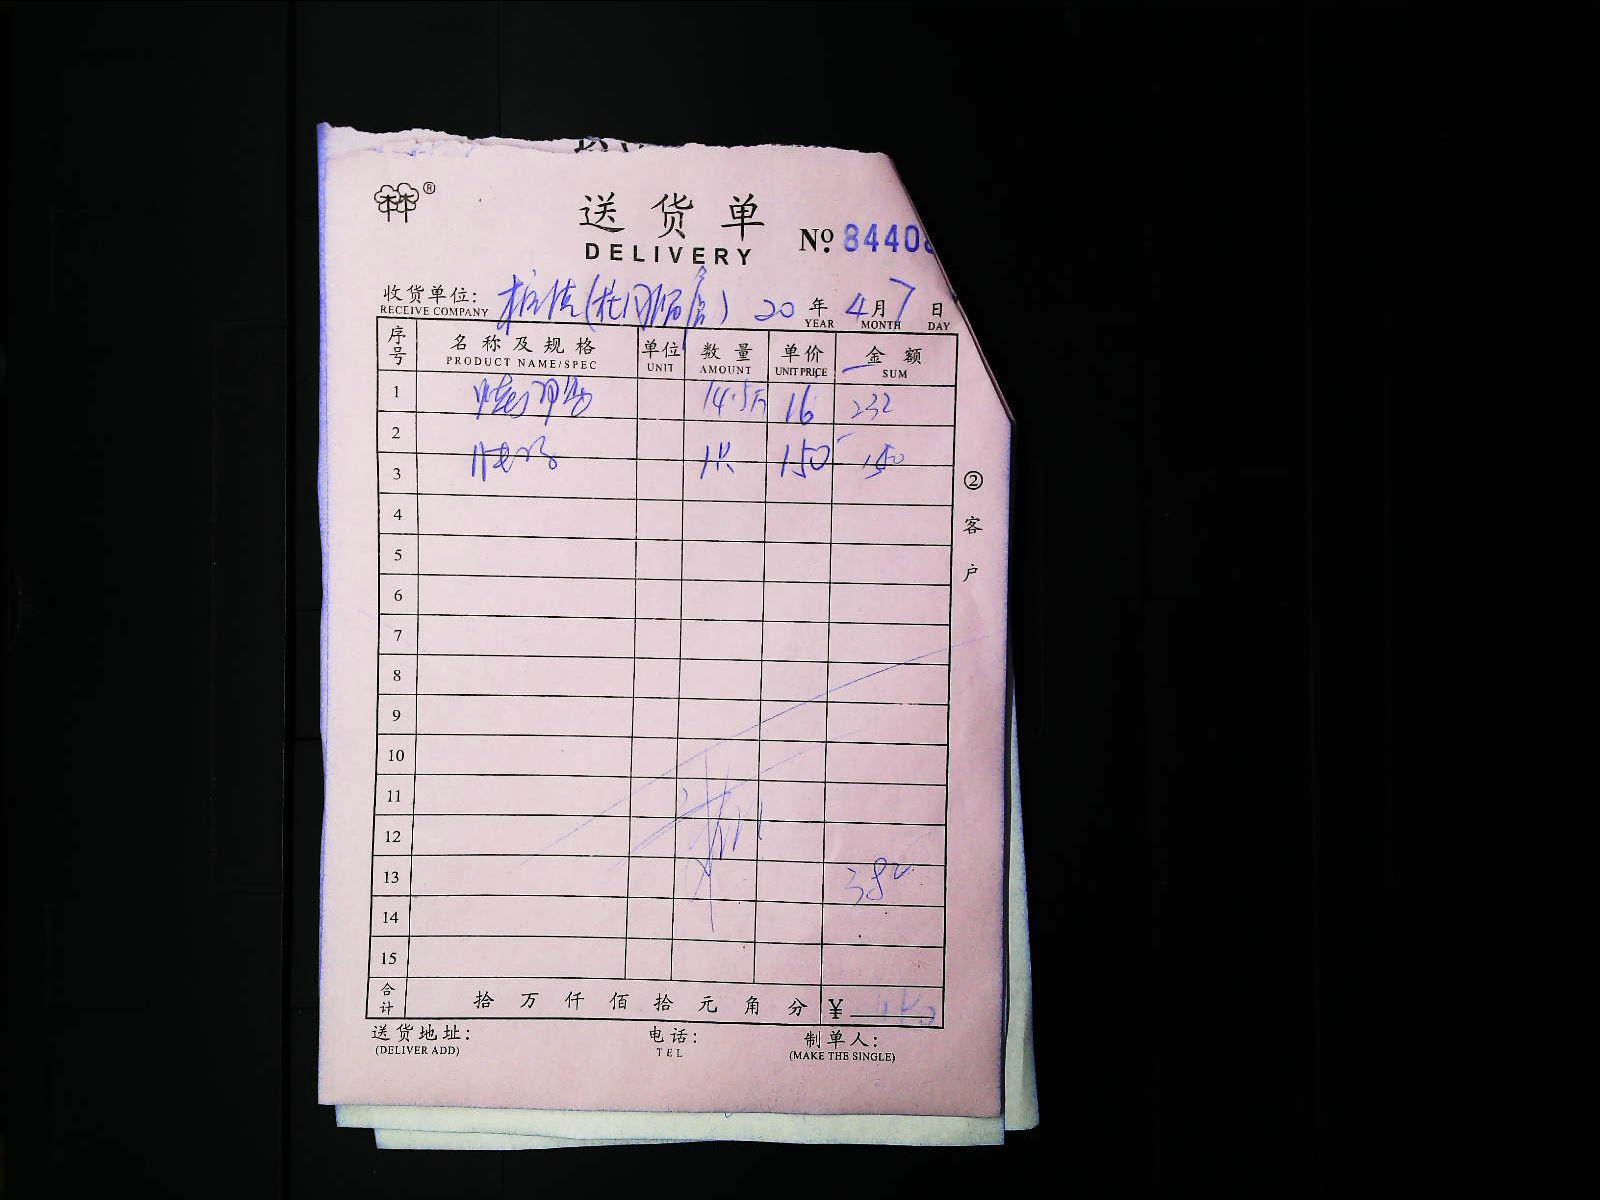 林 ®
送货单
DELIVERY
№ 84408
收货单位: 20 年 4 月 7 日
RECEIVE COMPANY YEAR MONTH DAY
序号 名称及规格 单位 数量 单价 金额
PRODUCT NAME/SPEC UNIT AMOUNT UNIT PRICE SUM
1 14.5斤 16 232
2 1只 150 150
3
4
5
6
7
8
9
10
11
12
13 382
14
15
合计 拾 万 仟 佰 拾 元 角 分 ¥
送货地址: 电话: 制单人:
(DELIVER ADD) TEL (MAKE THE SINGLE)
②客户